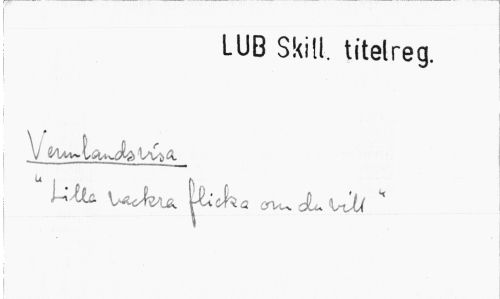 LUB Skill. titelreg.
Vermlandsvisa
"Lilla vackra flicka om du vill"